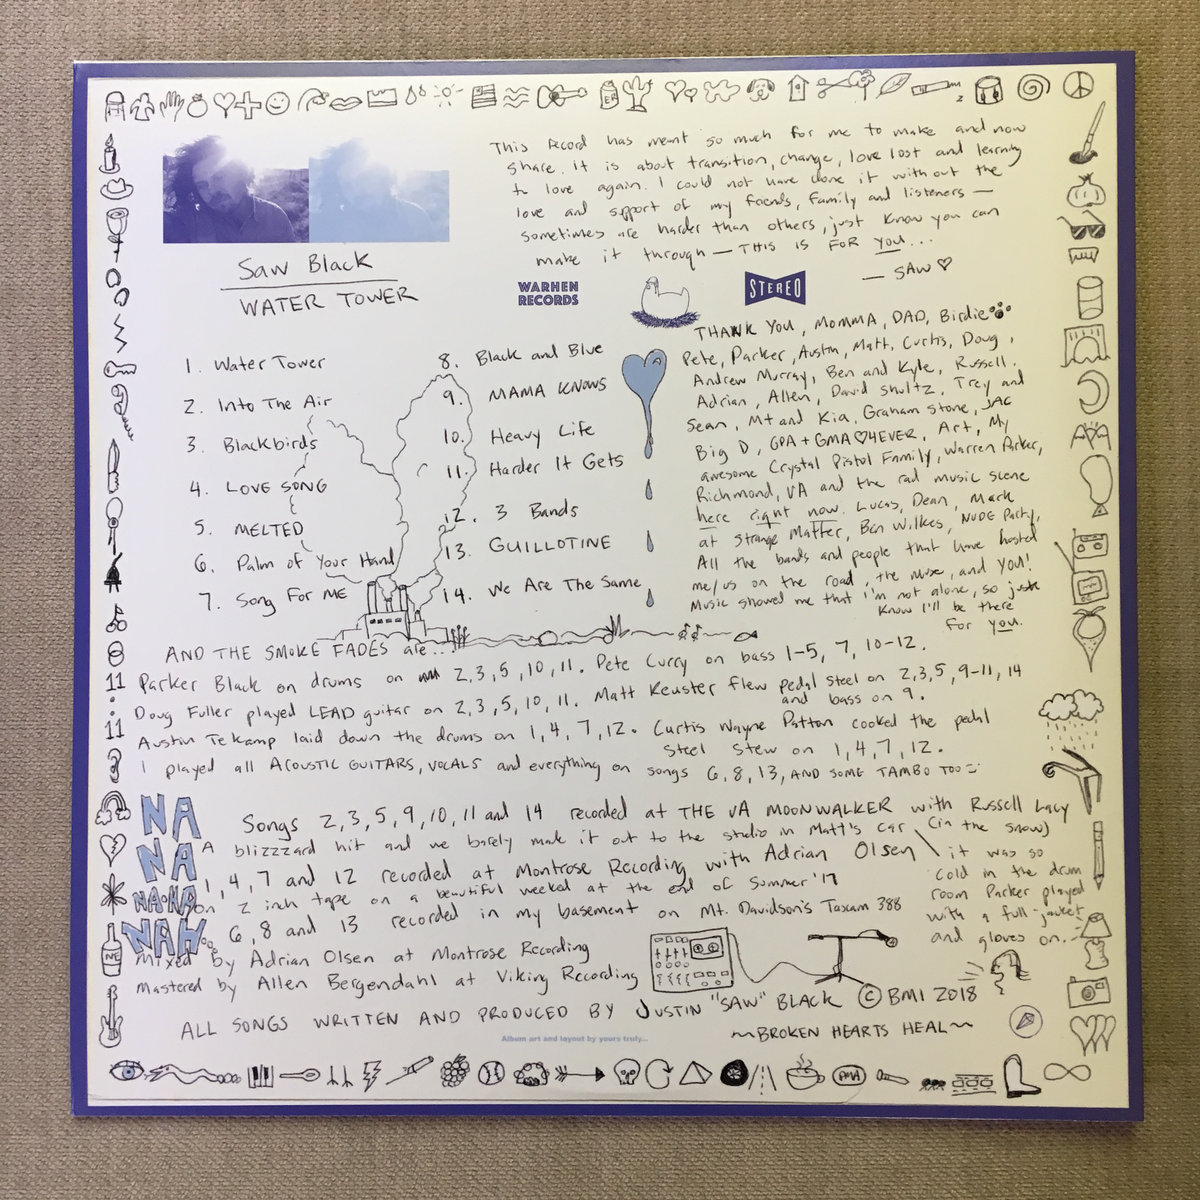 This record has meant so much for me to make and now
share. It is about transition, change, love lost and learning
to love again. I could not have done it without the
love and spport of my friends, family and listeners —
sometimes are harder than others, just know you can
make it through — THIS IS FOR you...
— SAW ♡
Saw Black
WATER TOWER
WARHEN
RECORDS
STEREO
1. Water Tower
2. Into The Air
3. Blackbirds
4. LOVE SONG
5. MELTED
6. Palm of Your Hand
7. Song For ME
8. Black and Blue
9. MAMA KNOWS
10. Heavy Life
11. Harder It Gets
12. 3 Bands
13. GUILLOTINE
14. We Are The Same
THANK YOU, MOMMA, DAD, Birdie
Pete, Parker, Austin, Matt, Curtis, Doug,
Andrew Murray, Ben and Kyle, Russell,
Adrian, Allen, David Shultz, Trey and
Sean, Mt and Kia, Graham Stone, JAC
Big D, GPA + GMA ♡ 4EVER, Art, My
awesome Crystal Pistol Family, Warren Parker,
Richmond, VA and the rad music scene
here right now. Lucas, Dean, Mark
at Strange Matter, Ben Wilkes, NUDE Party,
All the bands and people that have hosted
me/us on the road, the muse, and YOU!
Music showed me that I'm not alone, so just
know I'll be there
for you.
AND THE SMOKE FADES are...
Parker Black on drums on 2,3,5,10,11. Pete Curry on bass 1-5, 7, 10-12.
Doug Fuller played LEAD guitar on 2,3,5,10,11. Matt Keuster flew pedal steel on 2,3,5,9-11,14
and bass on 9.
Austin Tekamp laid down the drums on 1,4,7,12. Curtis Wayne Patton cooked the pedal
steel stew on 1,4,7,12.
I played all ACOUSTIC GUITARS, VOCALS and everything on songs 6,8,13, AND SOME TAMBO TOO
NA
NA
NA•NA
NAH...
Songs 2,3,5,9,10,11 and 14 recorded at THE VA MOONWALKER with Russell Lacy
A blizzzard hit and we barely make it out to the studio in Matt's car (in the snow)
it was so
cold in the drum
room Parker played
with a full-jacket
and gloves on.
1,4,7 and 12 recorded at Montrose Recording with Adrian Olsen
on 2 inch tape on a beautiful weeked at the end of Summer '17
6,8 and 13 recorded in my basement on Mt. Davidson's Tascam 388
Mixed by Adrian Olsen at Montrose Recording
Mastered by Allen Bergendahl at Viking Recording
ALL SONGS WRITTEN AND PRODUCED BY JUSTIN "SAW" BLACK © BMI 2018
Album art and layout by yours truly...
~BROKEN HEARTS HEAL~
11
:
11
PMA